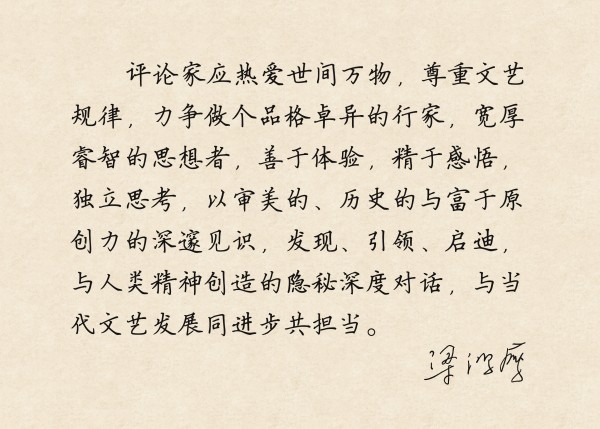 评论家应热爱世间万物，尊重文艺
规律，力争做个品格卓异的行家，宽厚
睿智的思想者，善于体验，精于感悟，
独立思考，以审美的、历史的与富于原
创力的深邃见识，发现、引领、启迪，
与人类精神创造的隐秘深度对话，与当
代文艺发展同进步共担当。
梁鸿鹰